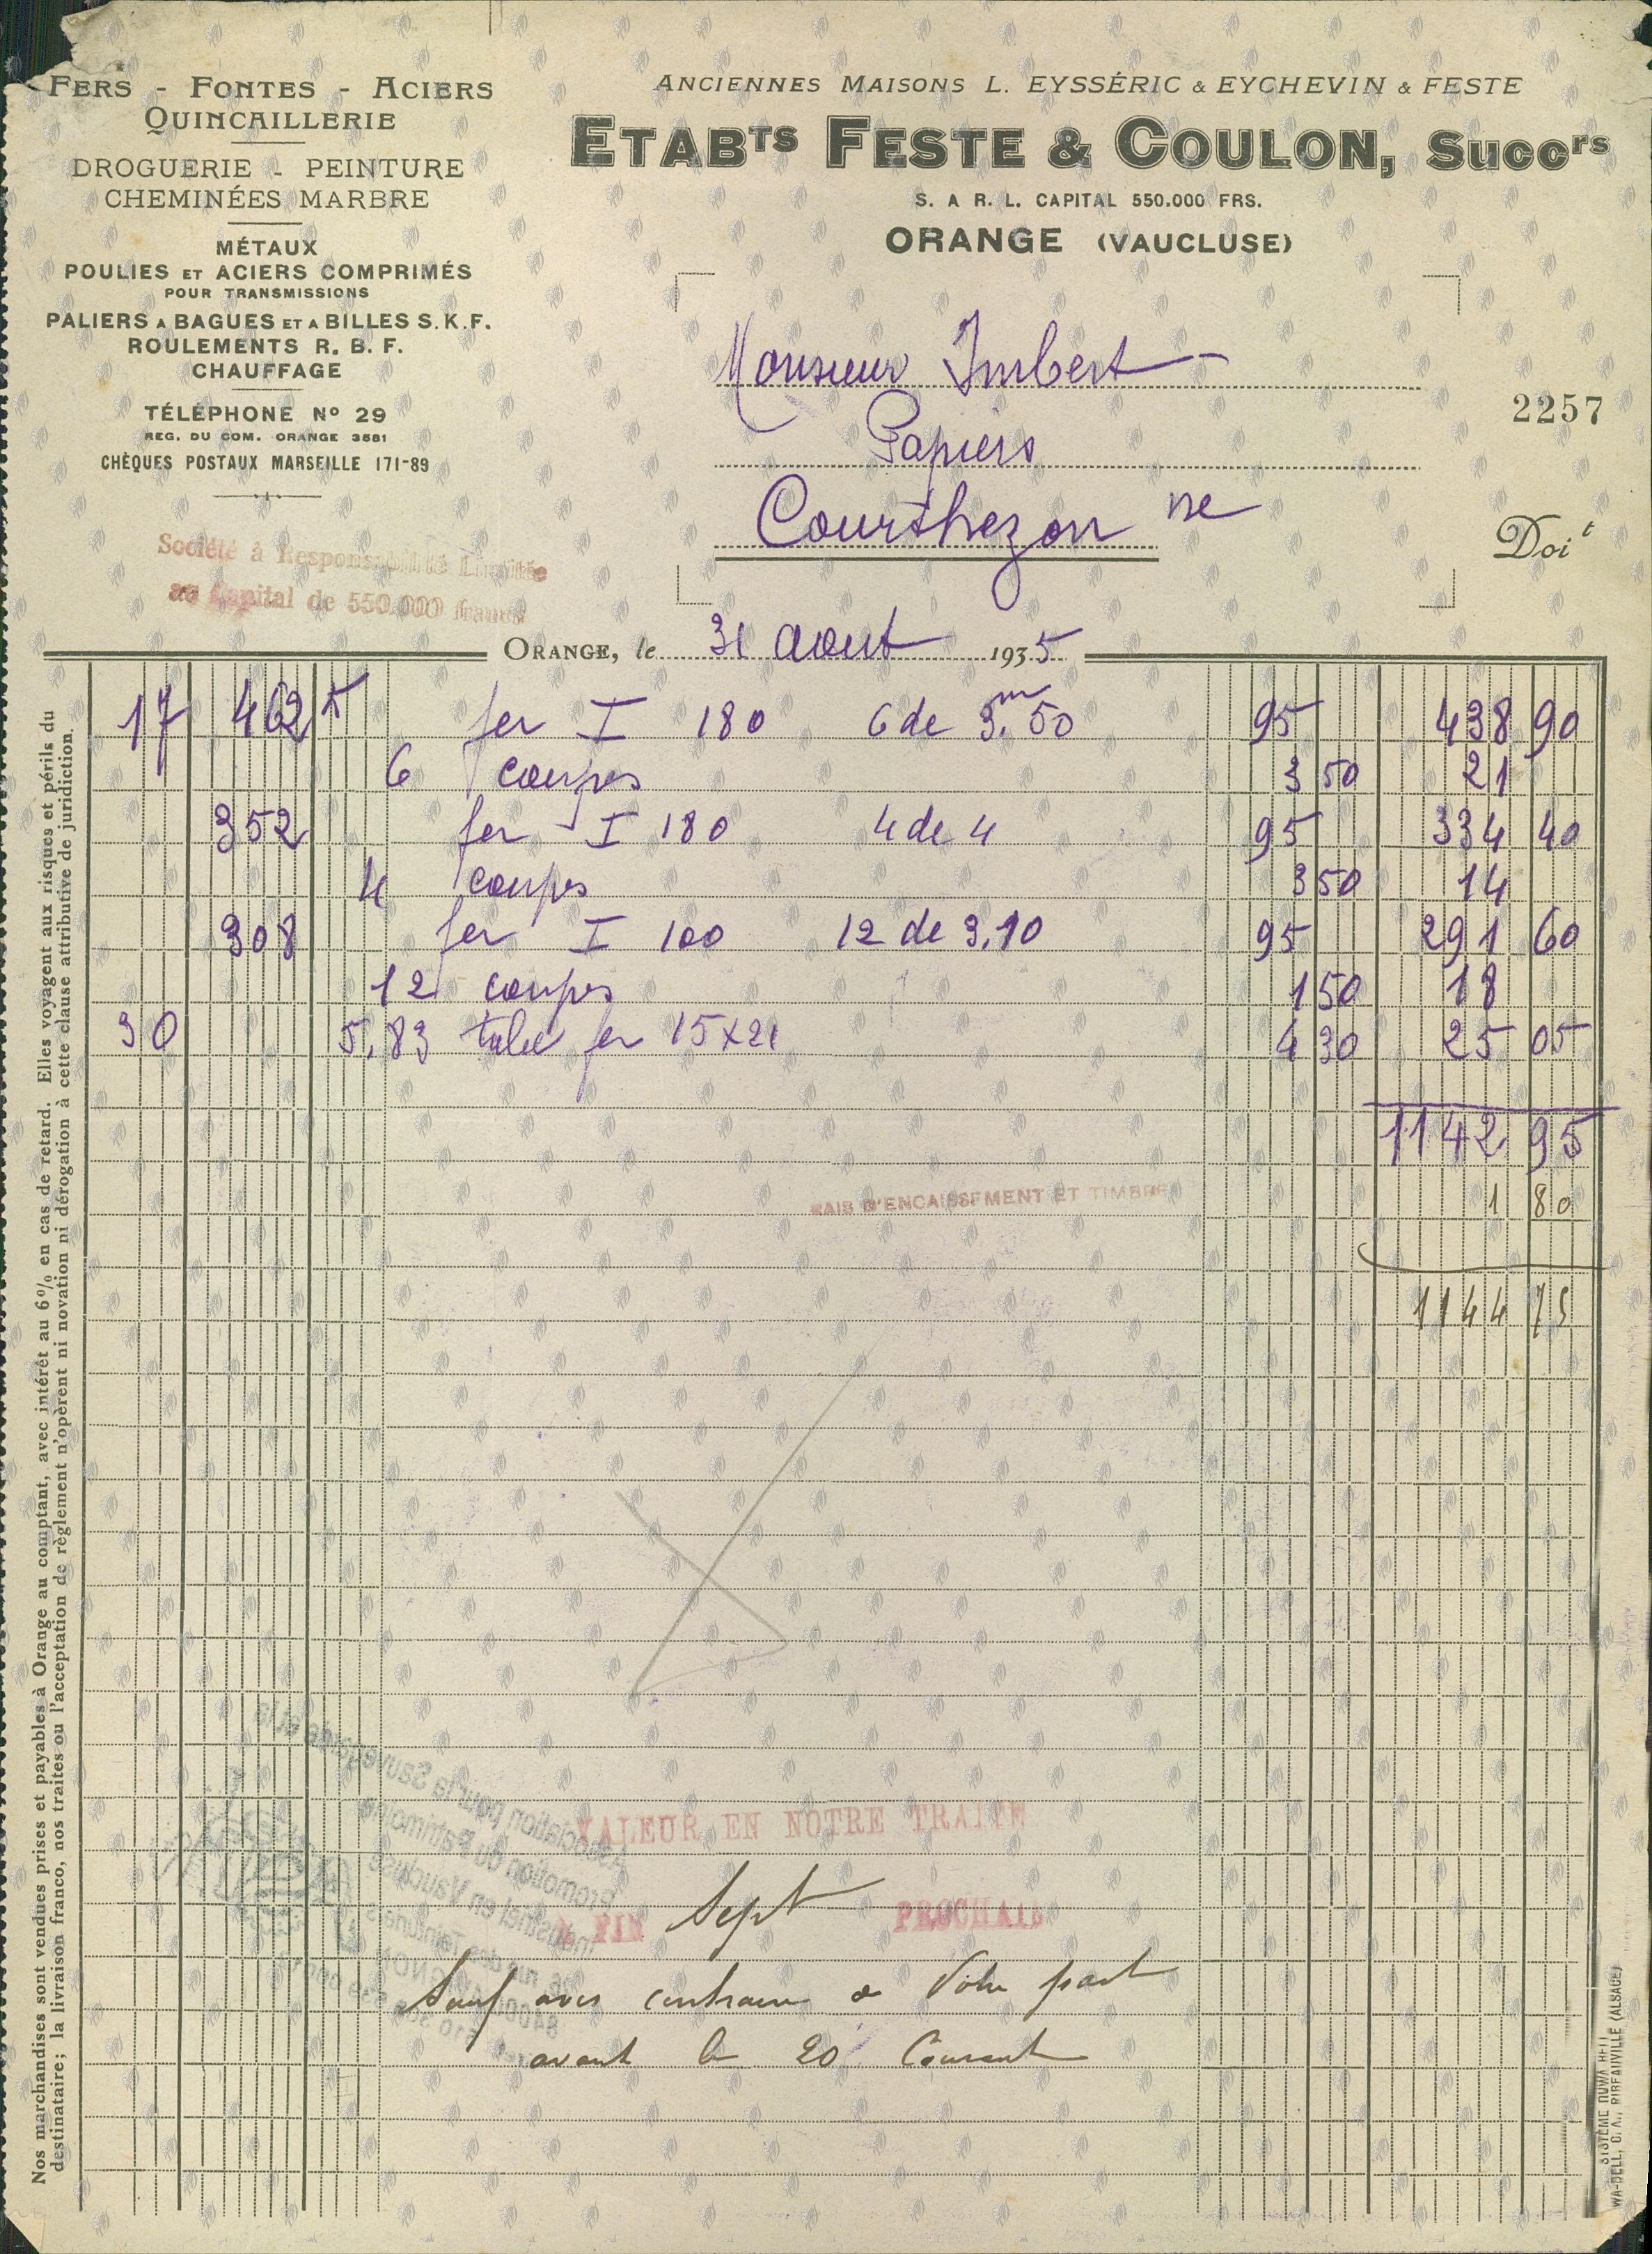 FERS - FONTES - ACIERS
QUINCAILLERIE
DROGUERIE - PEINTURE
CHEMINÉES MARBRE
MÉTAUX
POULIES ET ACIERS COMPRIMÉS
POUR TRANSMISSIONS
PALIERS A BAGUES ET A BILLES S.K.F.
ROULEMENTS R. B. F.
CHAUFFAGE
TÉLÉPHONE Nº 29
REG. DU COM. ORANGE 3581
CHÈQUES POSTAUX MARSEILLE 171-89
Société à Responsabilité Limitée
au Capital de 550.000 francs
ANCIENNES MAISONS L. EYSSÉRIC & EYCHEVIN & FESTE
ETABTS FESTE & COULON, Succrs
S. A R. L. CAPITAL 550.000 FRS.
ORANGE (VAUCLUSE)
Monsieur Imbert
Papiers
2257
Courthezon
Doit
ORANGE, le 31 aout 1935
17 462 K fer I 180 6 de 3.m50 95 438 90
6 coupes 3 50 21
352 fer I 180 4 de 4 95 334 40
4 coupes 3 50 14
308 fer I 100 12 de 3,10 95 291 60
12 coupes 1 50 18
30 5,83 tube fer 15x21 4 30 25 05
1142 95
RAIS D'ENCAISSEMENT ET TIMBRE 1 80
1144 75
VALEUR EN NOTRE TRAITE
FIN Sept PROCHAIN
Sauf avis contraire de Votre part
avant le 20 Courant
Nos marchandises sont vendues prises et payables à Orange au comptant, avec intérêt au 6% en cas de retard. Elles voyagent aux risques et périls du
destinataire; la livraison franco, nos traites ou l'acceptation de règlement n'opèrent ni novation ni dérogation à cette clause attributive de juridiction.
Association pour la Sauvegarde et la
Promotion du Patrimoine
Industriel en Vaucluse
rue des Teinturiers